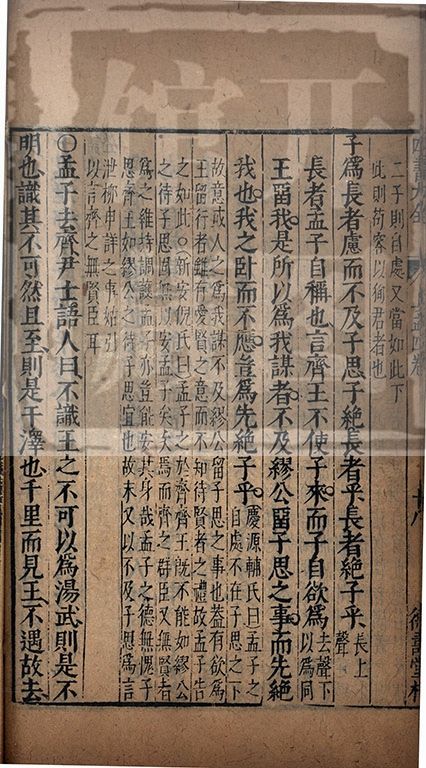 二子則自處又當如此下
此則苟容以徇君者也
子爲長者慮而不及子思子絶長者乎長者絶子乎長上聲
長者孟子自稱也言齊王不使子來而子自欲爲去聲下以爲同
王留我是所以爲我謀者不及繆公留子思之事而先絶
我也我之卧而不應豈爲先絶子乎慶源輔氏曰孟子之自處不在子思之下
故意或人之爲我謀不及繆公留子思之事也蓋有欲爲
王留行者雖有愛賢之意而不知待賢者之禮故孟子告
之如此○新安倪氏曰孟子之於齊齊王旣不能如繆公
之待子思固無以安孟子矣而齊之群臣又無賢者
爲之維持調護孟子亦豈能安其身哉孟子之德無愧子
思齊王如繆公之待子思宜也故末又以不及子思爲言
泄柳申詳之事始引
以言齊之無賢臣耳
○孟子去齊尹士語人曰不識王之不可以爲湯武則是不
明也識其不可然且至則是干澤也千里而見王不遇故去